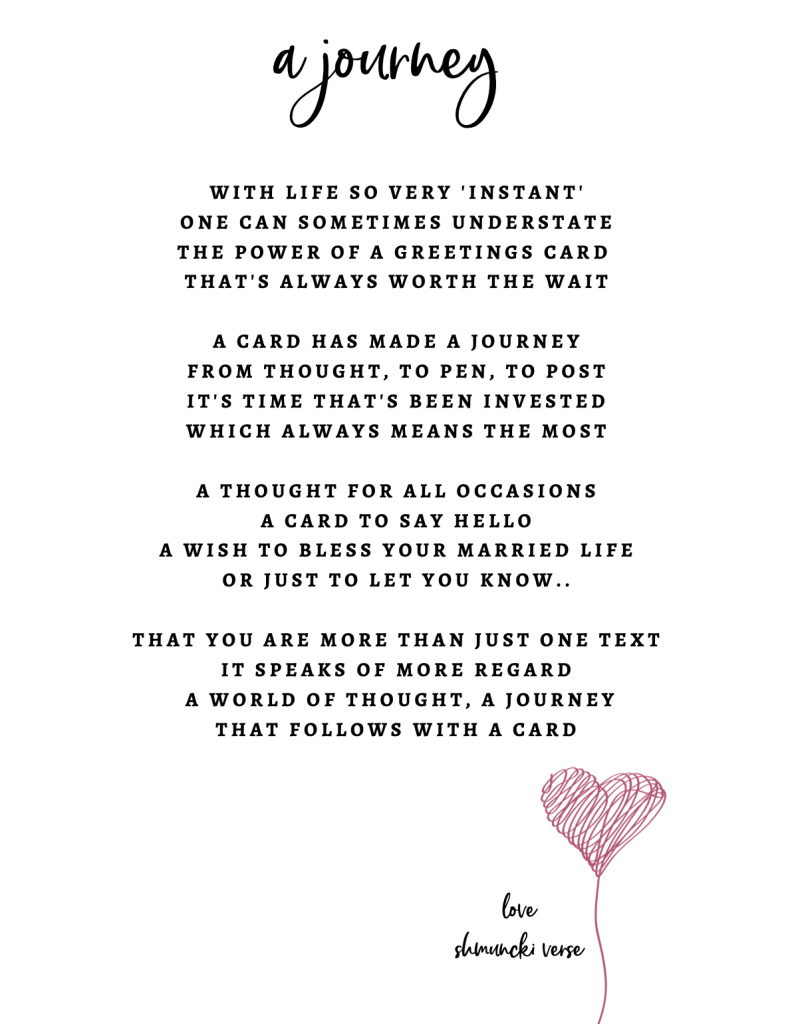 a journey
WITH LIFE SO VERY 'INSTANT'
ONE CAN SOMETIMES UNDERSTATE
THE POWER OF A GREETINGS CARD
THAT'S ALWAYS WORTH THE WAIT
A CARD HAS MADE A JOURNEY
FROM THOUGHT, TO PEN, TO POST
IT'S TIME THAT'S BEEN INVESTED
WHICH ALWAYS MEANS THE MOST
A THOUGHT FOR ALL OCCASIONS
A CARD TO SAY HELLO
A WISH TO BLESS YOUR MARRIED LIFE
OR JUST TO LET YOU KNOW..
THAT YOU ARE MORE THAN JUST ONE TEXT
IT SPEAKS OF MORE REGARD
A WORLD OF THOUGHT, A JOURNEY
THAT FOLLOWS WITH A CARD
love
shmuncki verse